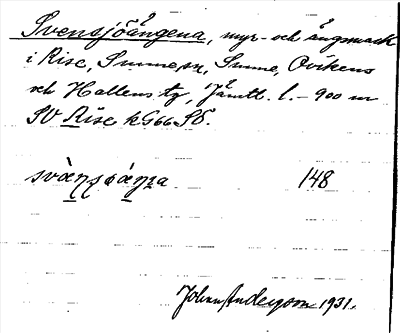 Svensjöängena, myr- och ängsmark
i Rise, Sunne sn, Sunne, Ovikens
och Hallens tg, Jämtl. l. – 900 m
SV Rise kG66 SÖ.
148
Johan Anderson 1931.